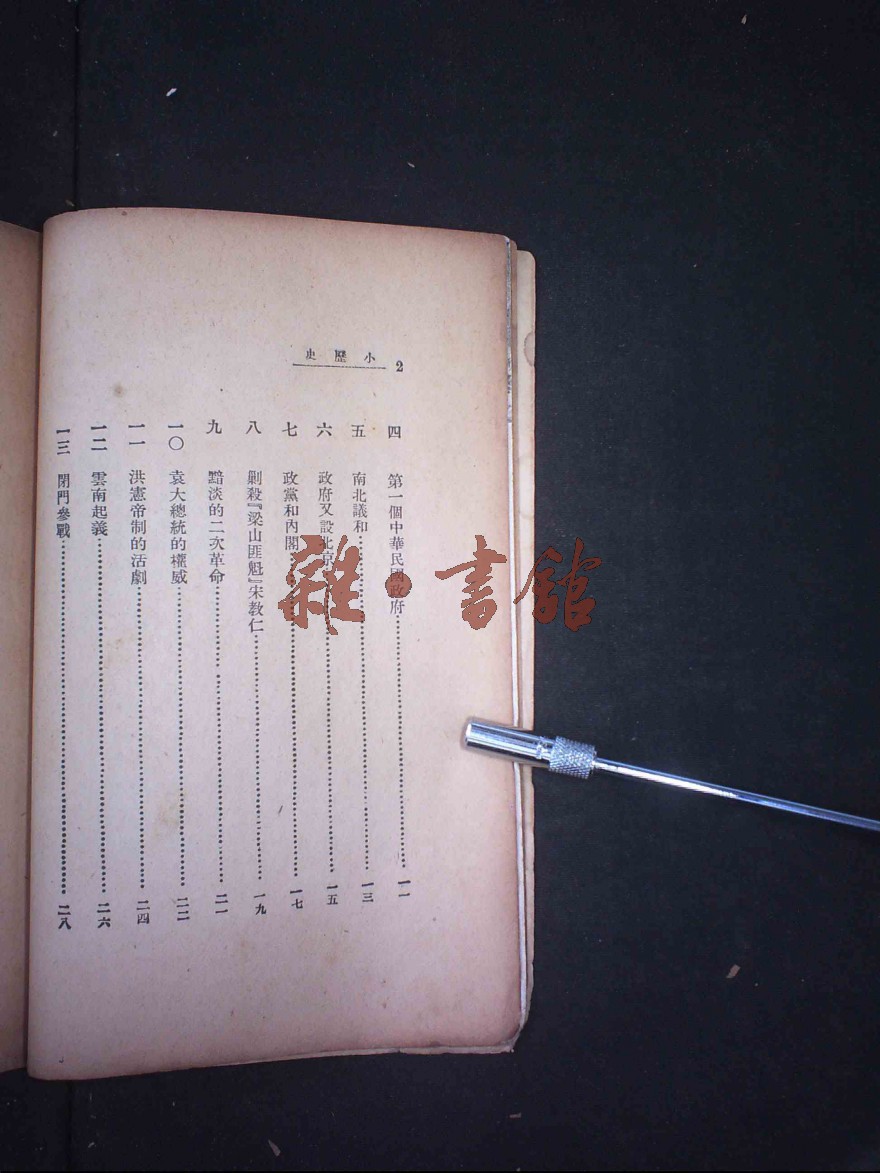 2 小歷史
四 第一個中華民國政府 一一
五 南北議和 一三
六 政府又設北京 一五
七 政黨和內閣 一七
八 剿殺『梁山匪魁』宋教仁 一九
九 黯淡的二次革命 二一
一〇 袁大總統的權威 二二
一一 洪憲帝制的活劇 二四
一二 雲南起義 二六
一三 閉門參戰 二八
雜·書館